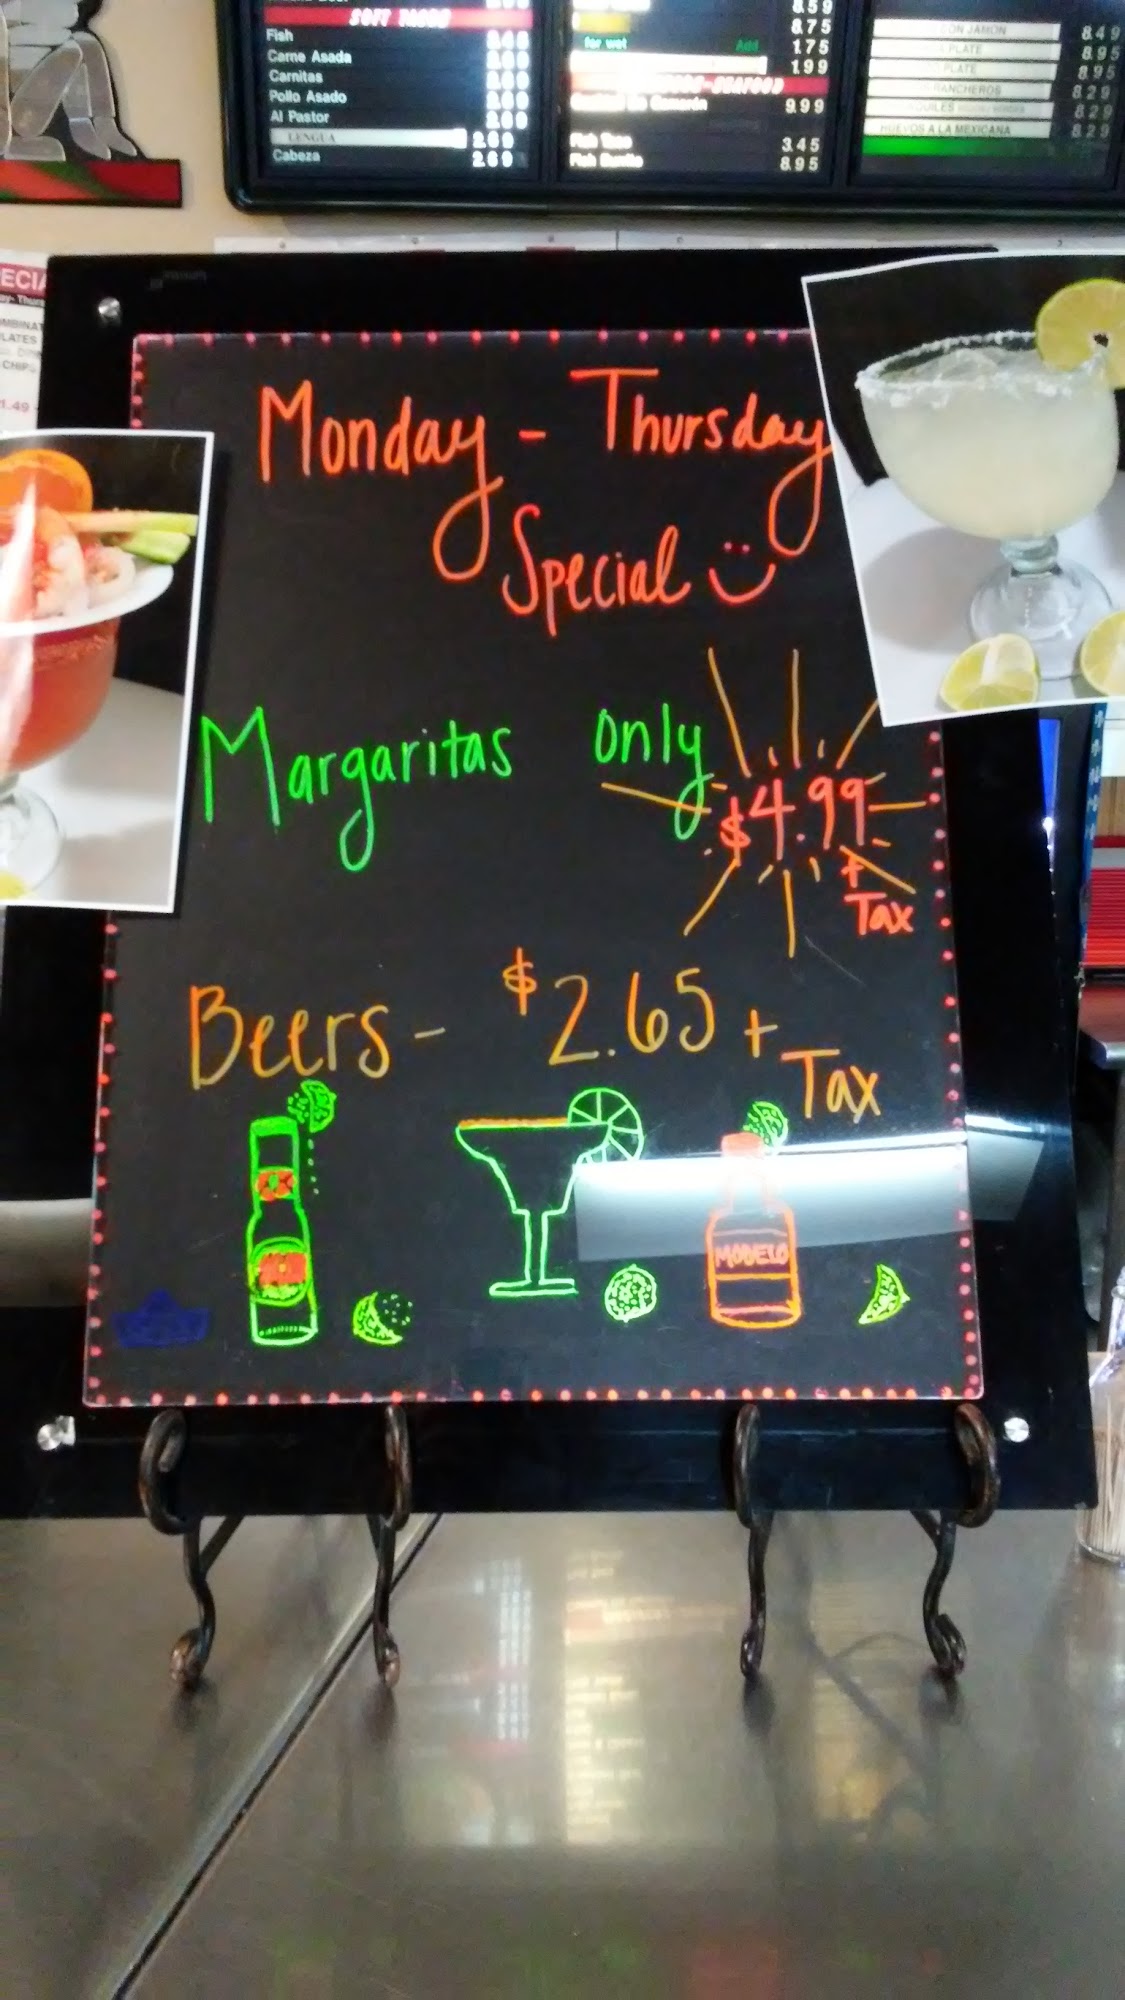 SOFT TACOS
Fish
Carne Asada
Carnitas
Pollo Asado
Al Pastor
LENGUA 2.69
Cabeza 2.69
8.59
8.75
for wet Add 1.75
1.99
9.99
Fish Taco 3.45
Fish Burrito 8.95
CON JAMON 8.49
PLATE 8.95
PLATE 8.95
RANCHEROS 8.29
8.29
HUEVOS A LA MEXICANA 8.29
Monday - Thursday
Special
Margaritas only
$4.99
+
Tax
Beers - $2.65 +
Tax
MODELO
ECIA
ay-Thurs
OMBINAT
LATES
CHIPS
1.49